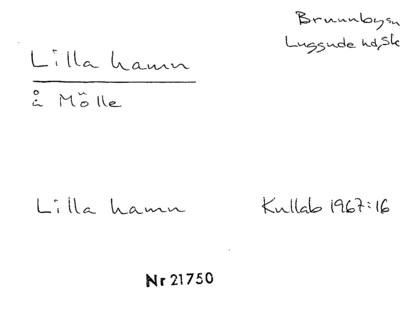 Brunnby sn
Luggude hd, Sk
Lilla hamn
å Mölle
Lilla hamn
Kullab 1967:16
Nr 21750